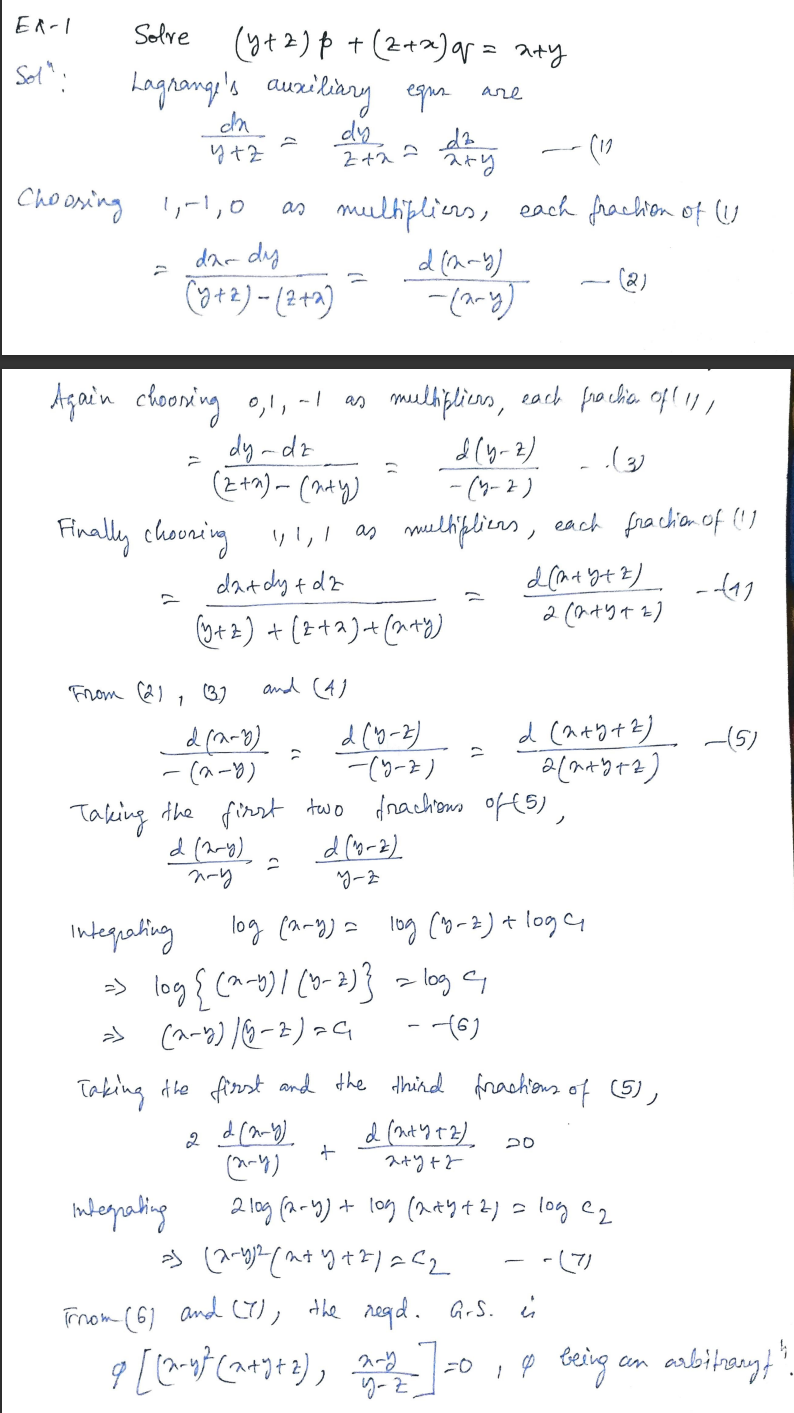 Ex-1 Solve (y+z)p + (z+x)q = x+y
Solⁿ: Lagrange's auxiliary eqns are
dx/(y+z) = dy/(z+x) = dz/(x+y) — (1)
Choosing 1, -1, 0 as multipliers, each fraction of (1)
= (dx - dy)/((y+z) - (z+x)) = d(x-y)/(-(x-y)) — (2)
Again choosing 0, 1, -1 as multipliers, each fractio of (1),
= (dy - dz)/((z+x) - (x+y)) = d(y-z)/(-(y-z)) - - (3)
Finally choosing 1, 1, 1 as multipliers, each fraction of (1)
= (dx + dy + dz)/((y+z) + (z+x) + (x+y)) = d(x+y+z)/(2(x+y+z)) - - (4)
From (2), (3) and (4)
d(x-y)/(-(x-y)) = d(y-z)/(-(y-z)) = d(x+y+z)/(2(x+y+z)) — (5)
Taking the first two fractions of (5),
d(x-y)/(x-y) = d(y-z)/(y-z)
Integrating log(x-y) = log(y-z) + log C₁
⇒ log{(x-y)/(y-z)} = log C₁
⇒ (x-y)/(y-z) = C₁ - - (6)
Taking the first and the third fractions of (5),
2 d(x-y)/(x-y) + d(x+y+z)/(x+y+z) = 0
Integrating 2 log(x-y) + log(x+y+z) = log C₂
⇒ (x-y)²(x+y+z) = C₂ - - (7)
From (6) and (7), the reqd. G.S. is
φ[(x-y)²(x+y+z), (x-y)/(y-z)] = 0, φ being an arbitrary fⁿ.